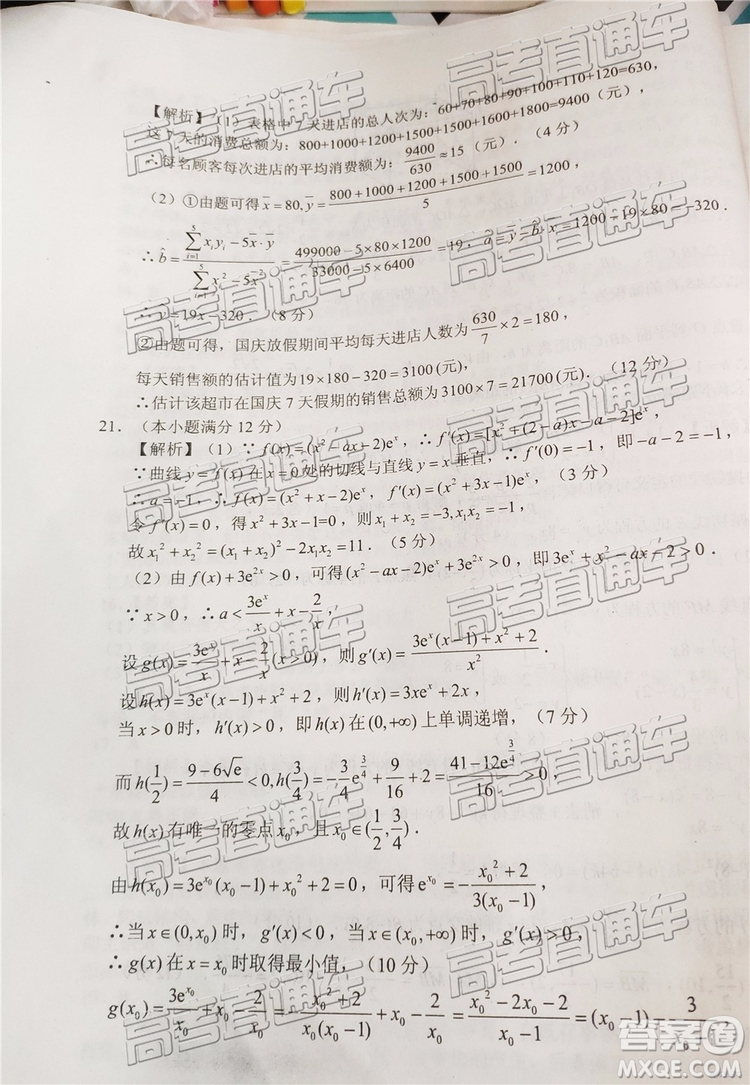 【解析】(1) 表格中7天进店的总人次为: 60+70+80+90+100+110+120=630,
这7天的消费总额为: 800+1000+1200+1500+1500+1600+1800=9400(元),
∴每名顾客每次进店的平均消费额为: 9400/630≈15(元). (4分)
(2) ①由题可得x̄=80, ȳ=(800+1000+1200+1500+1500)/5=1200,
∴b̂=(∑_{i=1}^{5} x_i y_i-5x̄·ȳ)/(∑_{i=1}^{5} x_i²-5x̄²)=(499000-5×80×1200)/(33000-5×6400)=19, â=ȳ-b̂x̄=1200-19×80=-320.
∴ŷ=19x-320. (8分)
②由题可得, 国庆放假期间平均每天进店人数为630/7×2=180,
每天销售额的估计值为19×180-320=3100(元),
∴估计该超市在国庆7天假期的销售总额为3100×7=21700(元). (12分)
21. (本小题满分12分)
【解析】(1) ∵f(x)=(x²-ax-2)eˣ, ∴f′(x)=[x²+(2-a)x-a-2]eˣ,
∵曲线y=f(x)在x=0处的切线与直线y=x垂直, ∴f′(0)=-1, 即-a-2=-1,
∴a=-1, ∴f(x)=(x²+x-2)eˣ, f′(x)=(x²+3x-1)eˣ, (3分)
令f′(x)=0, 得x²+3x-1=0, 则x₁+x₂=-3, x₁x₂=-1,
故x₁²+x₂²=(x₁+x₂)²-2x₁x₂=11. (5分)
(2) 由f(x)+3e²ˣ>0, 可得(x²-ax-2)eˣ+3e²ˣ>0, 即3eˣ+x²-ax-2>0.
∵x>0, ∴a<3eˣ/x+x-2/x,
设g(x)=3eˣ/x+x-2/x(x>0), 则g′(x)=(3eˣ(x-1)+x²+2)/x².
设h(x)=3eˣ(x-1)+x²+2, 则h′(x)=3xeˣ+2x,
当x>0时, h′(x)>0, 即h(x)在(0,+∞)上单调递增, (7分)
而h(1/2)=(9-6√e)/4<0, h(3/4)=-3/4e^(3/4)+9/16+2=(41-12e^(3/4))/16>0,
故h(x)有唯一的零点x₀, 且x₀∈(1/2,3/4).
由h(x₀)=3e^(x₀)(x₀-1)+x₀²+2=0, 可得e^(x₀)=-(x₀²+2)/(3(x₀-1)),
∴当x∈(0,x₀)时, g′(x)<0, 当x∈(x₀,+∞)时, g′(x)>0,
∴g(x)在x=x₀时取得最小值, (10分)
g(x₀)=3e^(x₀)/x₀+x₀-2/x₀=-(x₀²+2)/(x₀(x₀-1))+x₀-2/x₀=(x₀²-2x₀-2)/(x₀-1)=(x₀-1)-3/(x₀-1)
高考直通车
答案圈
MXQE.COM